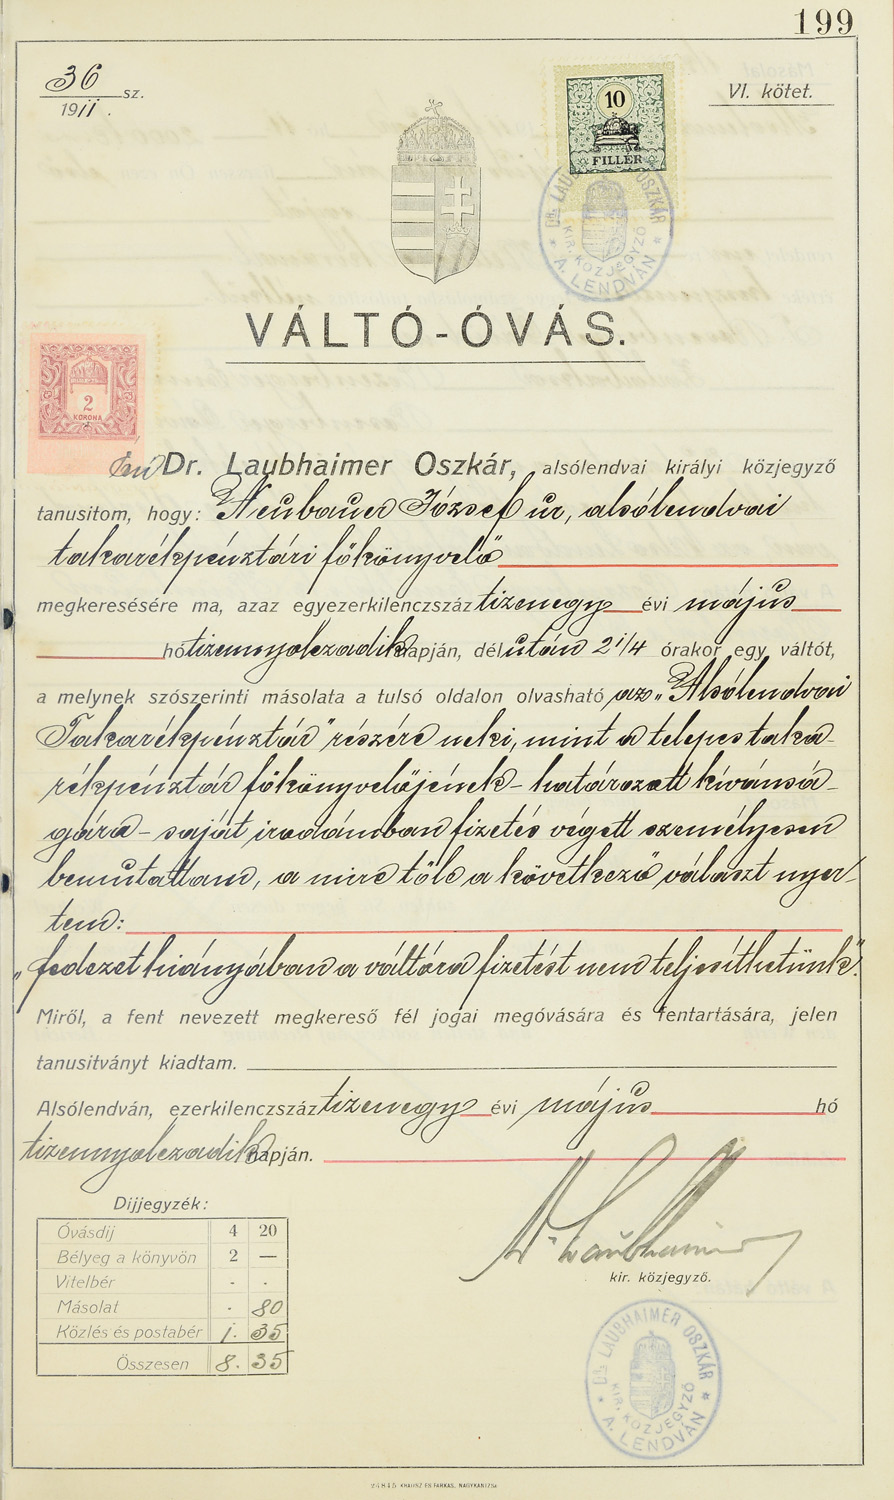 199
36 sz.
1911.
VI. kötet.
10
FILLÉR
DR. LAUBHAIMER OSZKÁR
KIR. KÖZJEGYZŐ
* A. LENDVÁN *
VÁLTÓ-ÓVÁS.
2
KORONA
Én Dr. Laubhaimer Oszkár, alsólendvai királyi közjegyző
tanusitom, hogy: Neubauer József ur, alsólendvai
takarékpénztári főkönyvelő
megkeresésére ma, azaz egyezerkilenczszáz tizenegy évi május
hó tizennyolczadik napján, délután 2 1/4 órakor egy váltót,
a melynek szószerinti másolata a tulsó oldalon olvasható az „Alsólendvai
Takarékpénztár" részére neki, mint a telepes taka-
rékpénztár főkönyvelőjének - határozott kívánsá-
gára - saját irodámban fizetés végett személyesen
bemutattam, a mire tőle a következő választ nyer-
tem:
„fedezet hiányában a váltóra fizetést nem teljesíthetünk".
Miről, a fent nevezett megkereső fél jogai megóvására és fentartására, jelen
tanusitványt kiadtam.
Alsólendván, ezerkilenczszáz tizenegy évi május hó
tizennyolczadik napján.
Dr. Laubhaimer
kir. közjegyző.
Dijjegyzék:
Óvásdij 4 20
Bélyeg a könyvön 2 —
Vitelbér - -
Másolat - 80
Közlés és postabér 1. 35
Összesen 8. 35
DR. LAUBHAIMER OSZKÁR
KIR. KÖZJEGYZŐ
* A. LENDVÁN *
24845 KRAUSZ ÉS FARKAS, NAGYKANIZSA